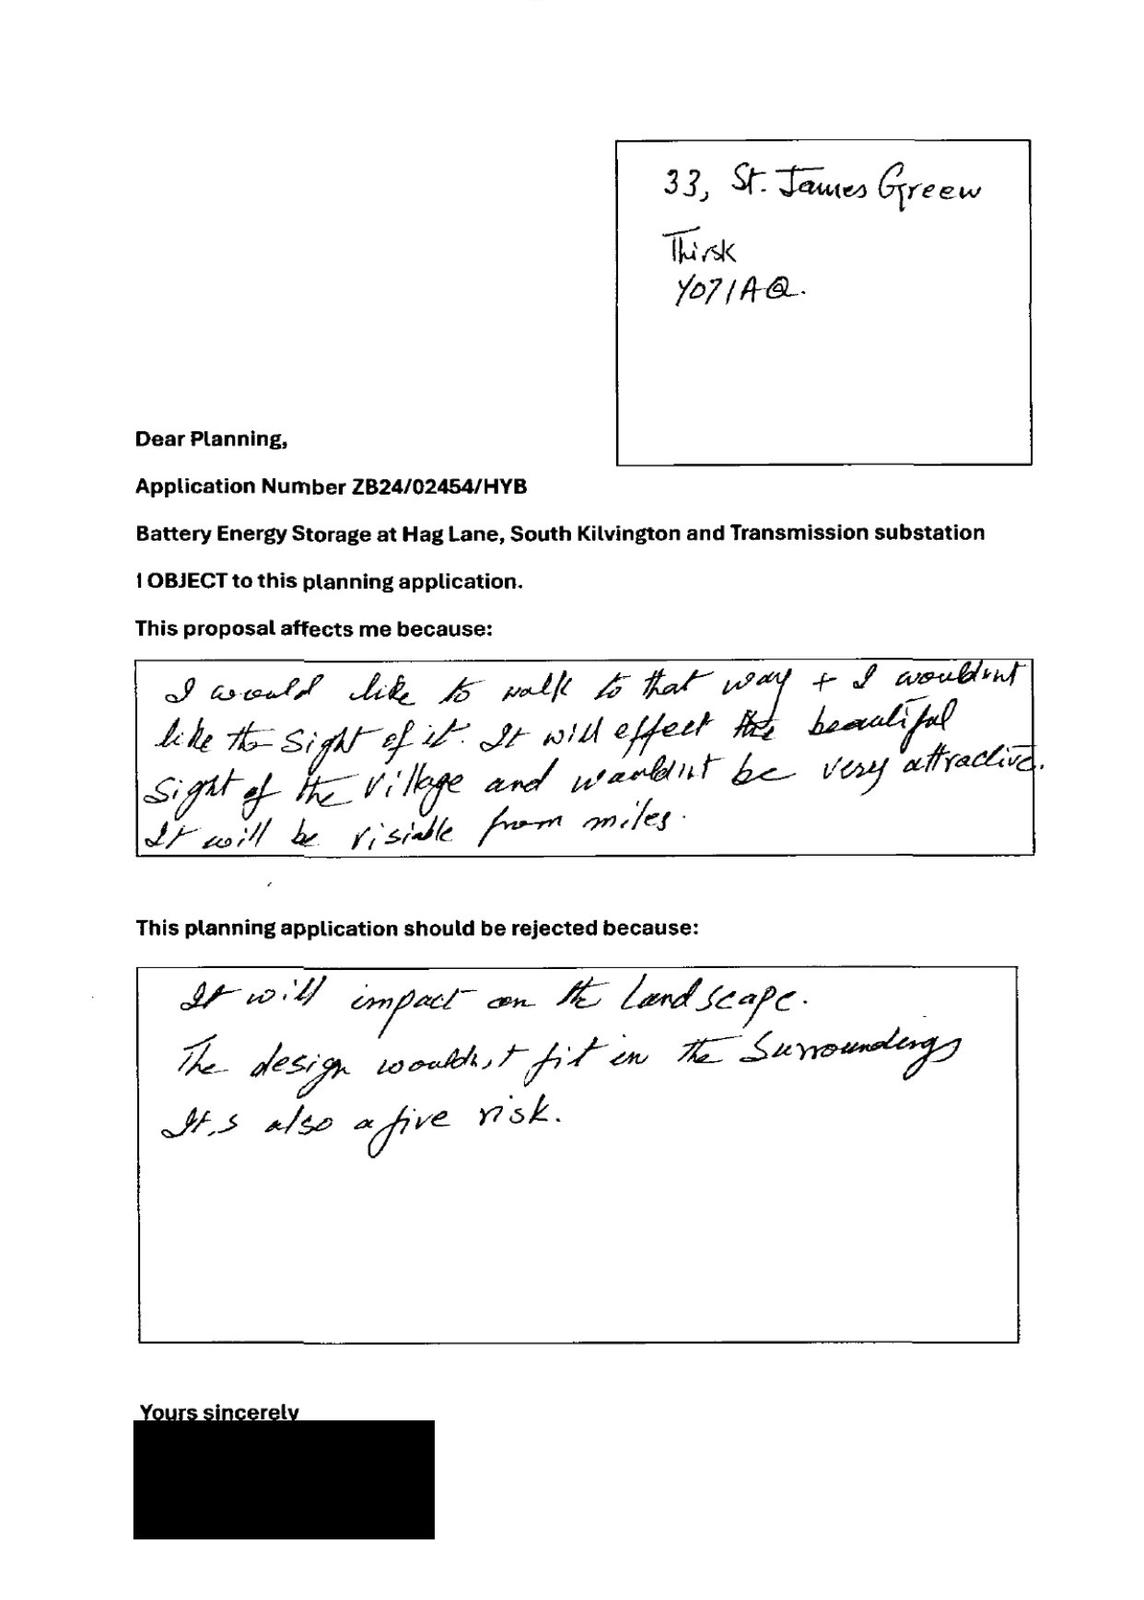 33, St. James Green
Thirsk
YO71AQ.
Dear Planning,
Application Number ZB24/02454/HYB
Battery Energy Storage at Hag Lane, South Kilvington and Transmission substation
I OBJECT to this planning application.
This proposal affects me because:
I would like to walk to that way + I wouldnt
like the sight of it. It will effect the beautiful
sight of the village and wouldnt be very attractive.
It will be visiable from miles.
This planning application should be rejected because:
It will impact on the Landscape.
The design wouldn,t fit in the Surroundings
It,s also a fire risk.
Yours sincerely